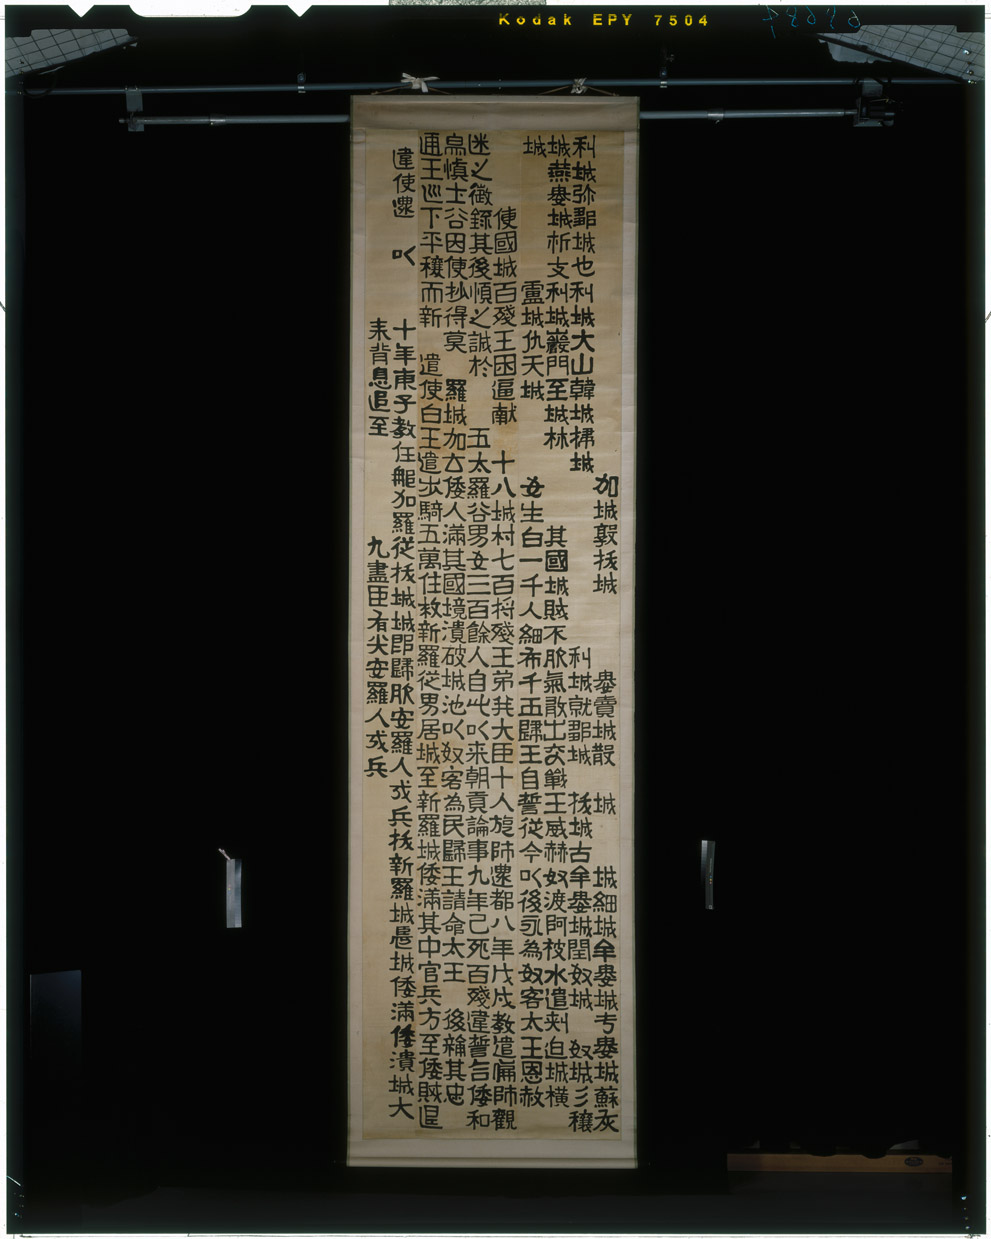 Kodak EPY 7504
加城敦拔城 婁賣城散 城 城細城牟婁城亐婁城蘇灰
利城弥鄒城也利城大山韓城掃城 利城就鄒城 拔城古牟婁城閏奴城 奴城彡穰
城燕婁城析支利城巖門至城林 其國城賊不服氣敢出交戰王威赫奴渡阿被水遣刺迫城橫
城 盧城仇天城 女生白一千人細布千五歸王自誓從今以後永為奴客太王恩赦
使國城百殘王困逼献 十八城村七百将殘王弟幷大臣十人旋師還都八年戊戌教遣偏師觀
迷之徵錄其後順之誠於 五太羅谷男女三百餘人自此以来朝貢論事九年己死百殘違誓言倭和
帛慎土谷因便抄得莫 羅城加太倭人滿其國境潰破城池以奴客為民歸王請命太王 後稐其忠
通王巡下平穰而新 遣使白王遣步騎五萬住救新羅從男居城至新羅城倭滿其中官兵方至倭賊退
違使還 以 十年庚子教任龜加羅從拔城城即歸服安羅人戎兵拔新羅城晨城倭滿倭潰城大
来背息追至 九盡臣有尖安羅人戎兵